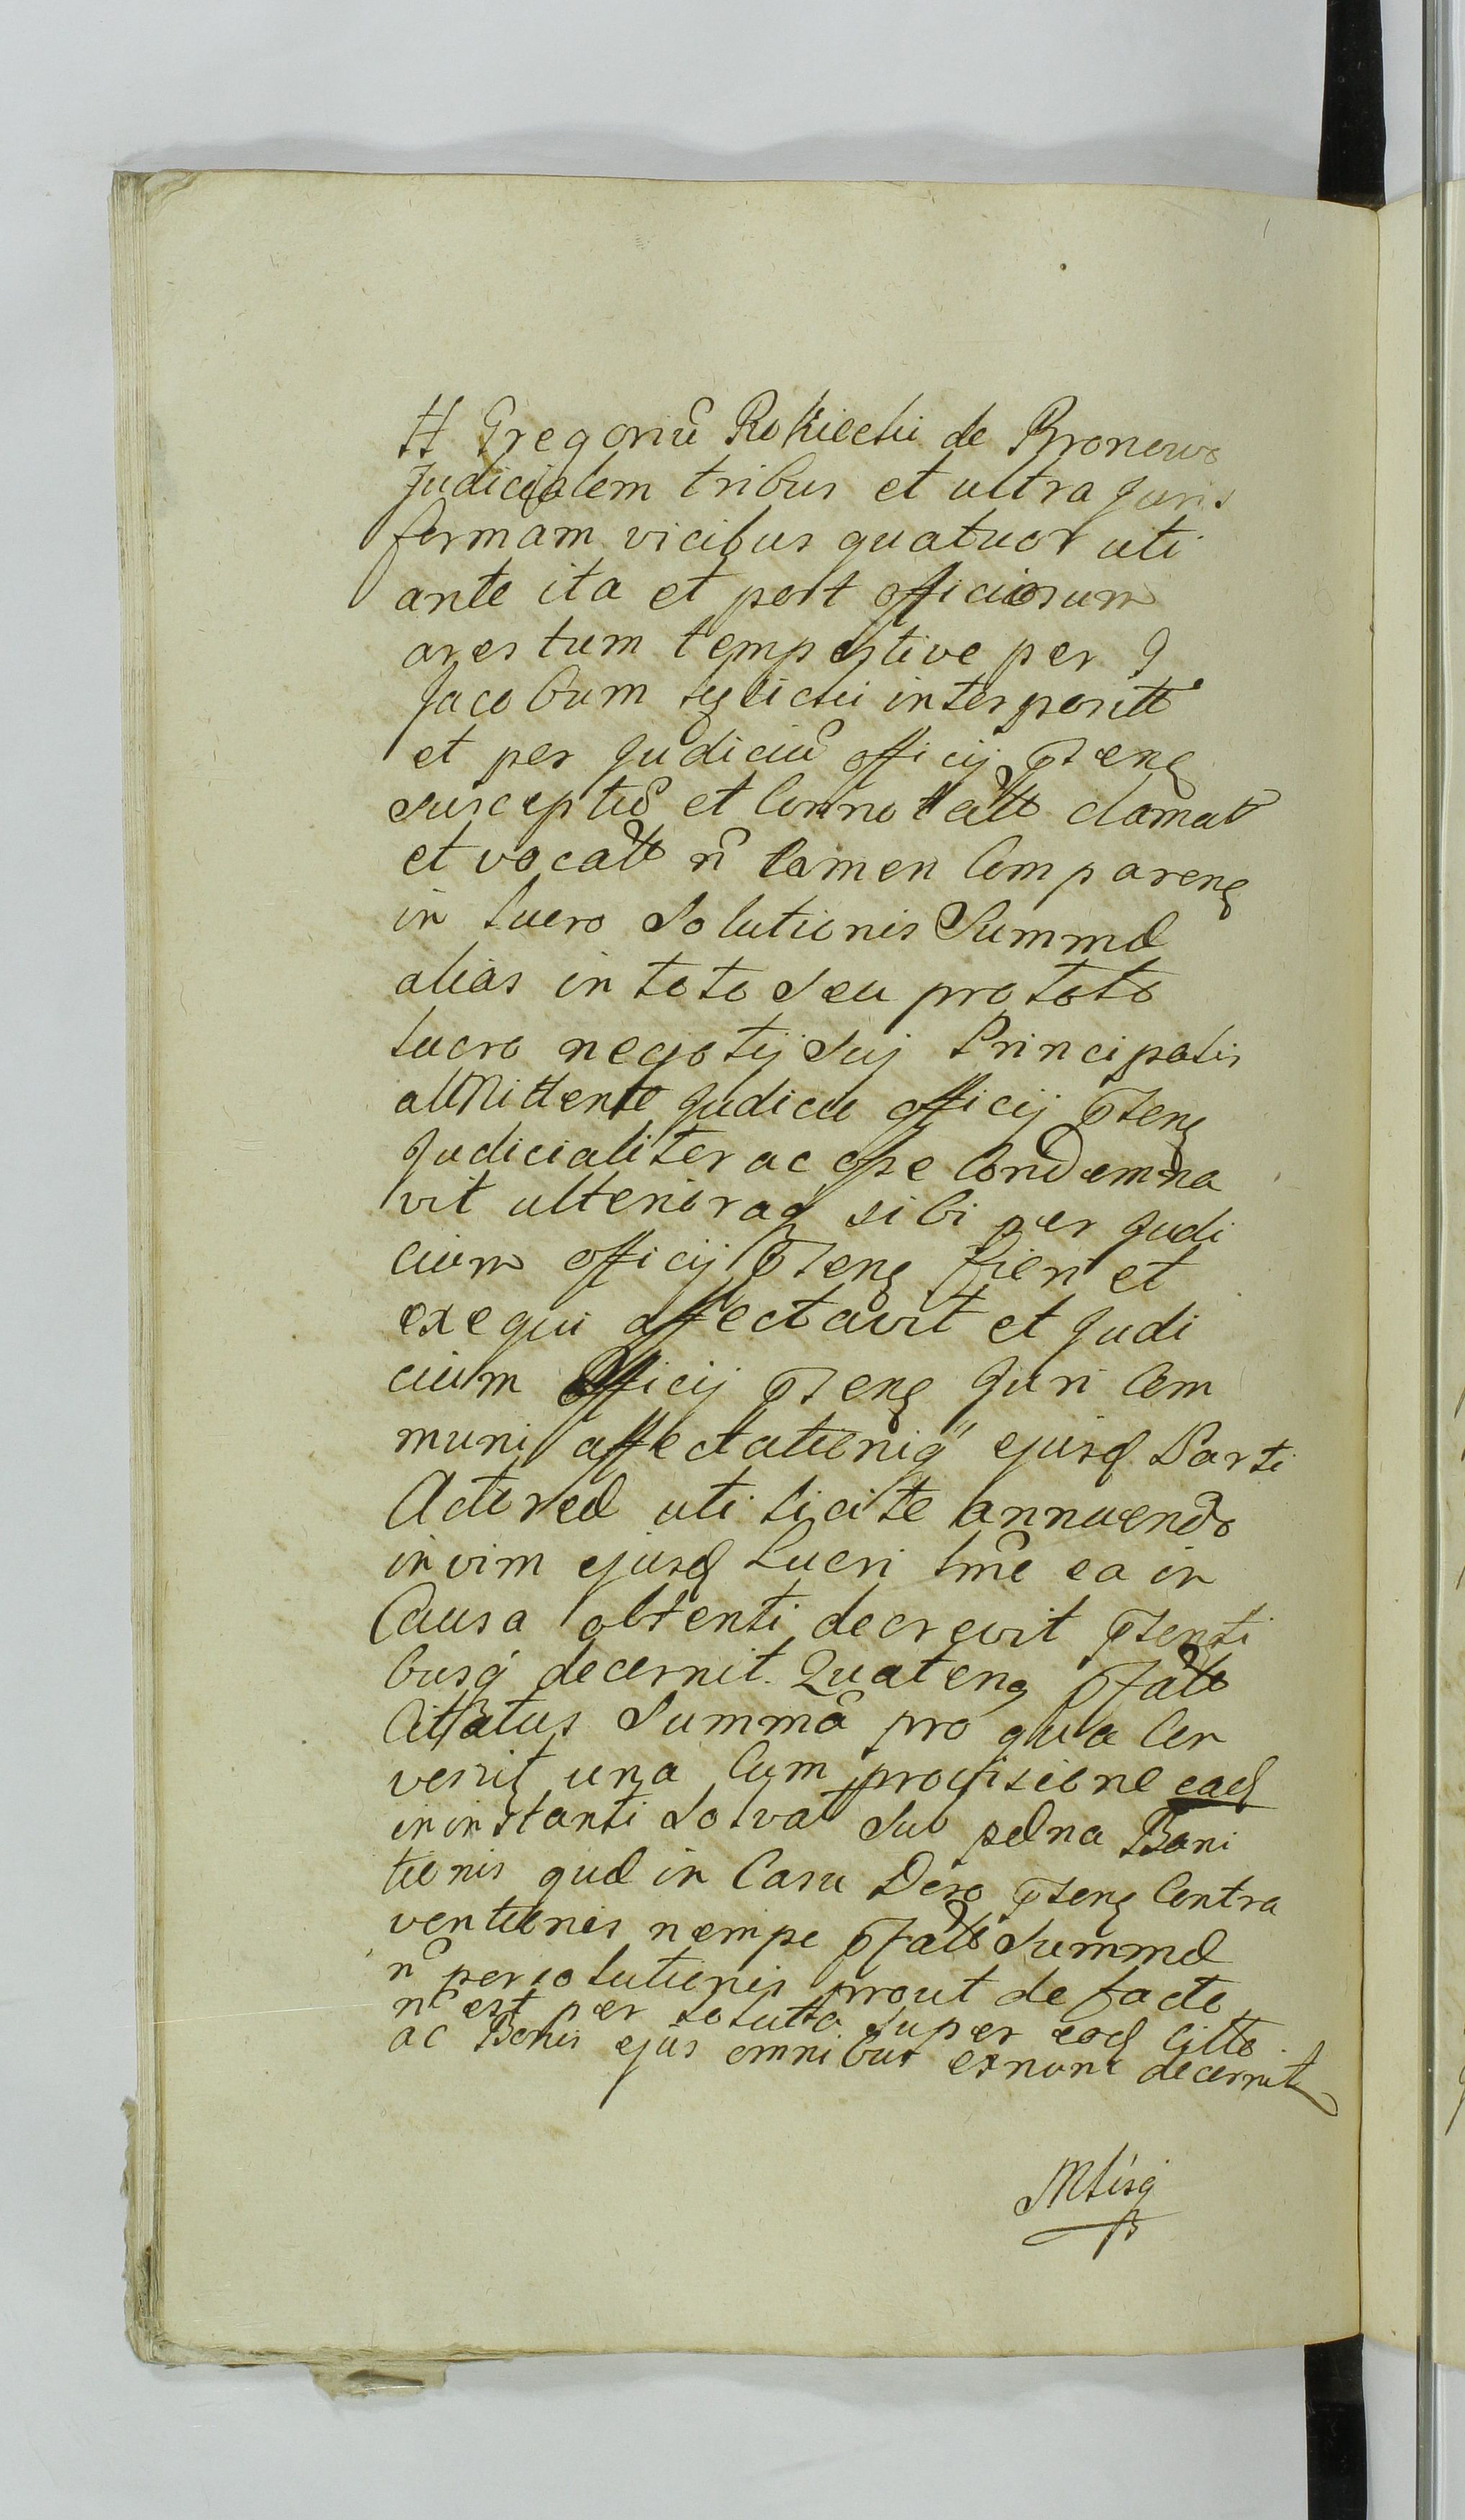 H Gregoriũ Rokiecki de Bronewo
Judicialem tribus et ultra Juris
formam vicibus quatuor uti
ante ita et post officiosum
arestum tempestive per G
Jacobum interposit
et per Judiciũ officij pntens
susceptũ et Connotatt clamat
et vocatt ñ tamen Comparens
in lucro Solutionis Summæ
alias in toto seu pro toto
lucro negotij sui Principalis
admittente Judicio officij pntens
Judicialiter ac Condemna
vit ulterioraq sibi per Judi
cium officij pntens fieri et
exequi affectavit et Judi
cium officij pntens Juri Com
muni affectationiq ejusd Parti
Actoreæ uti licite annuendo
in vim ejusd Lucri ea in
Causa obtenti decrevit pntenti
busq decernit. Quatens
Cittatus Summã pro qua Con
venit una Cum provisione ead
in instanti Solvat Sub pæna Bani
tionis quæ in Casu pntens Contra
ventionis nempe Summæ
ñ persolutionis prout de facto
ñ est per soluta super eod Citto
ac Bonis ejus omnibus exnunc decernit